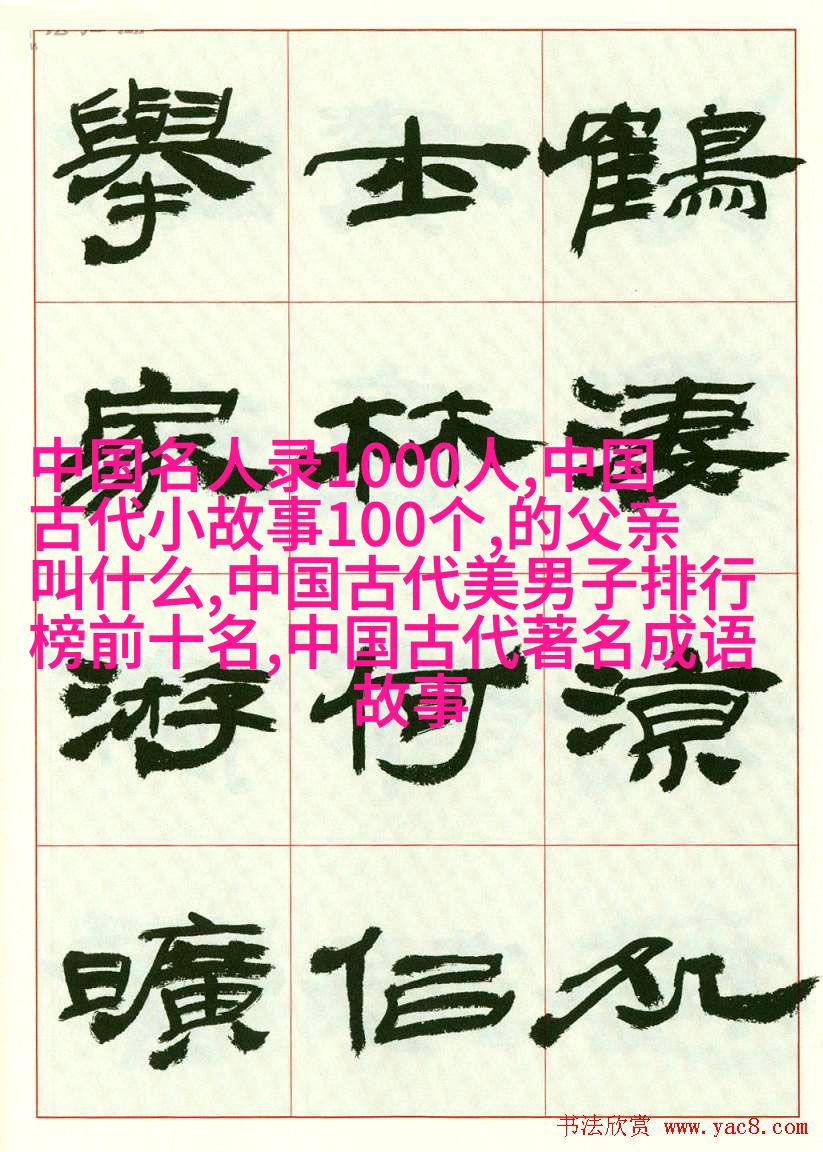 鶴淒涼
士林何侶
舉家游曠
中国名人录1000人,中国
古代小故事100个,的父亲
叫什么,中国古代美男子排行
榜前十名,中国古代著名成语
故事
书法欣赏 www.yac8.com